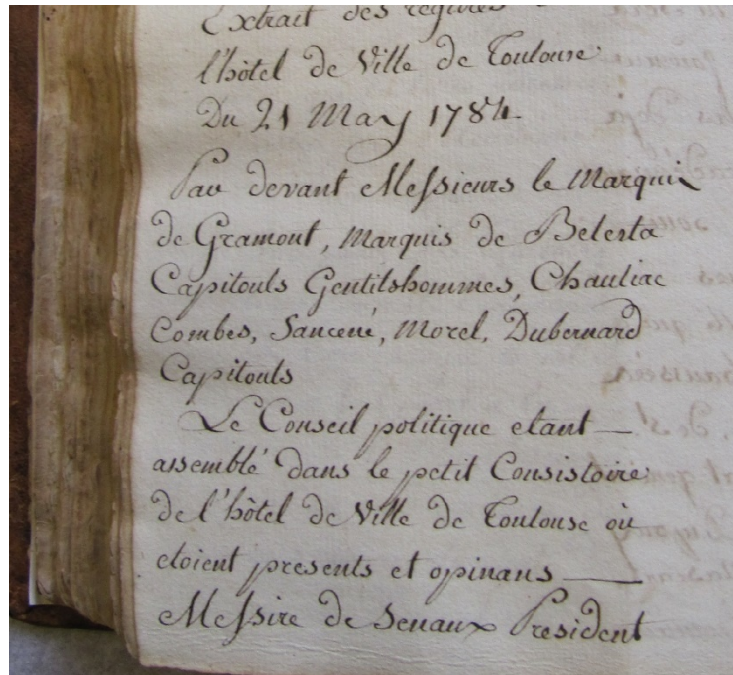 Extrait des registres
l'hôtel de Ville de Toulouse
Du 21 May 1784
Par devant Messieurs le Marquis
de Gramont, Marquis de Belesta
Capitouls Gentilshommes, Chauliac
Combes, Sancené, Morel, Dubernard
Capitouls
Le Conseil politique etant —
assemblé dans le petit Consistoire
de l'hôtel de Ville de Toulouse où
etoient presents et opinans —
Messire de Senaux President